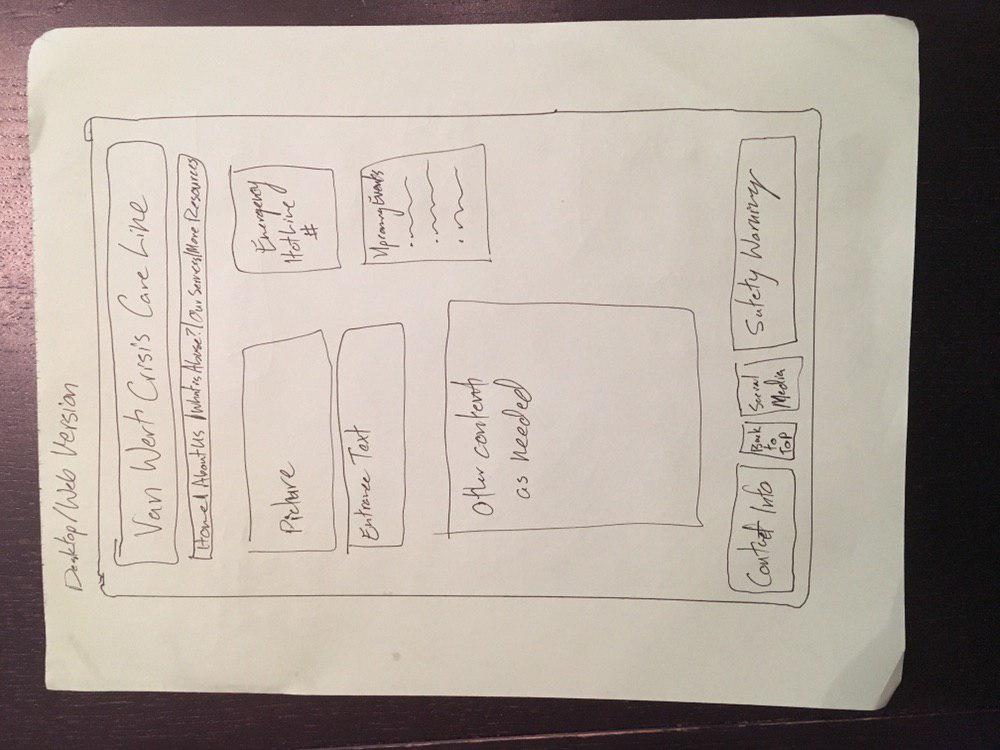 Desktop/Web Version
Van Wert Crisis Care Line
Home | About Us | What is Abuse? | Our Services | More Resources
Picture
Emergency
Hotline
#
Entrance Text
Upcoming Events
Other content
as needed
Contact Info
Back
to
Top
Social
Media
Safety Warning